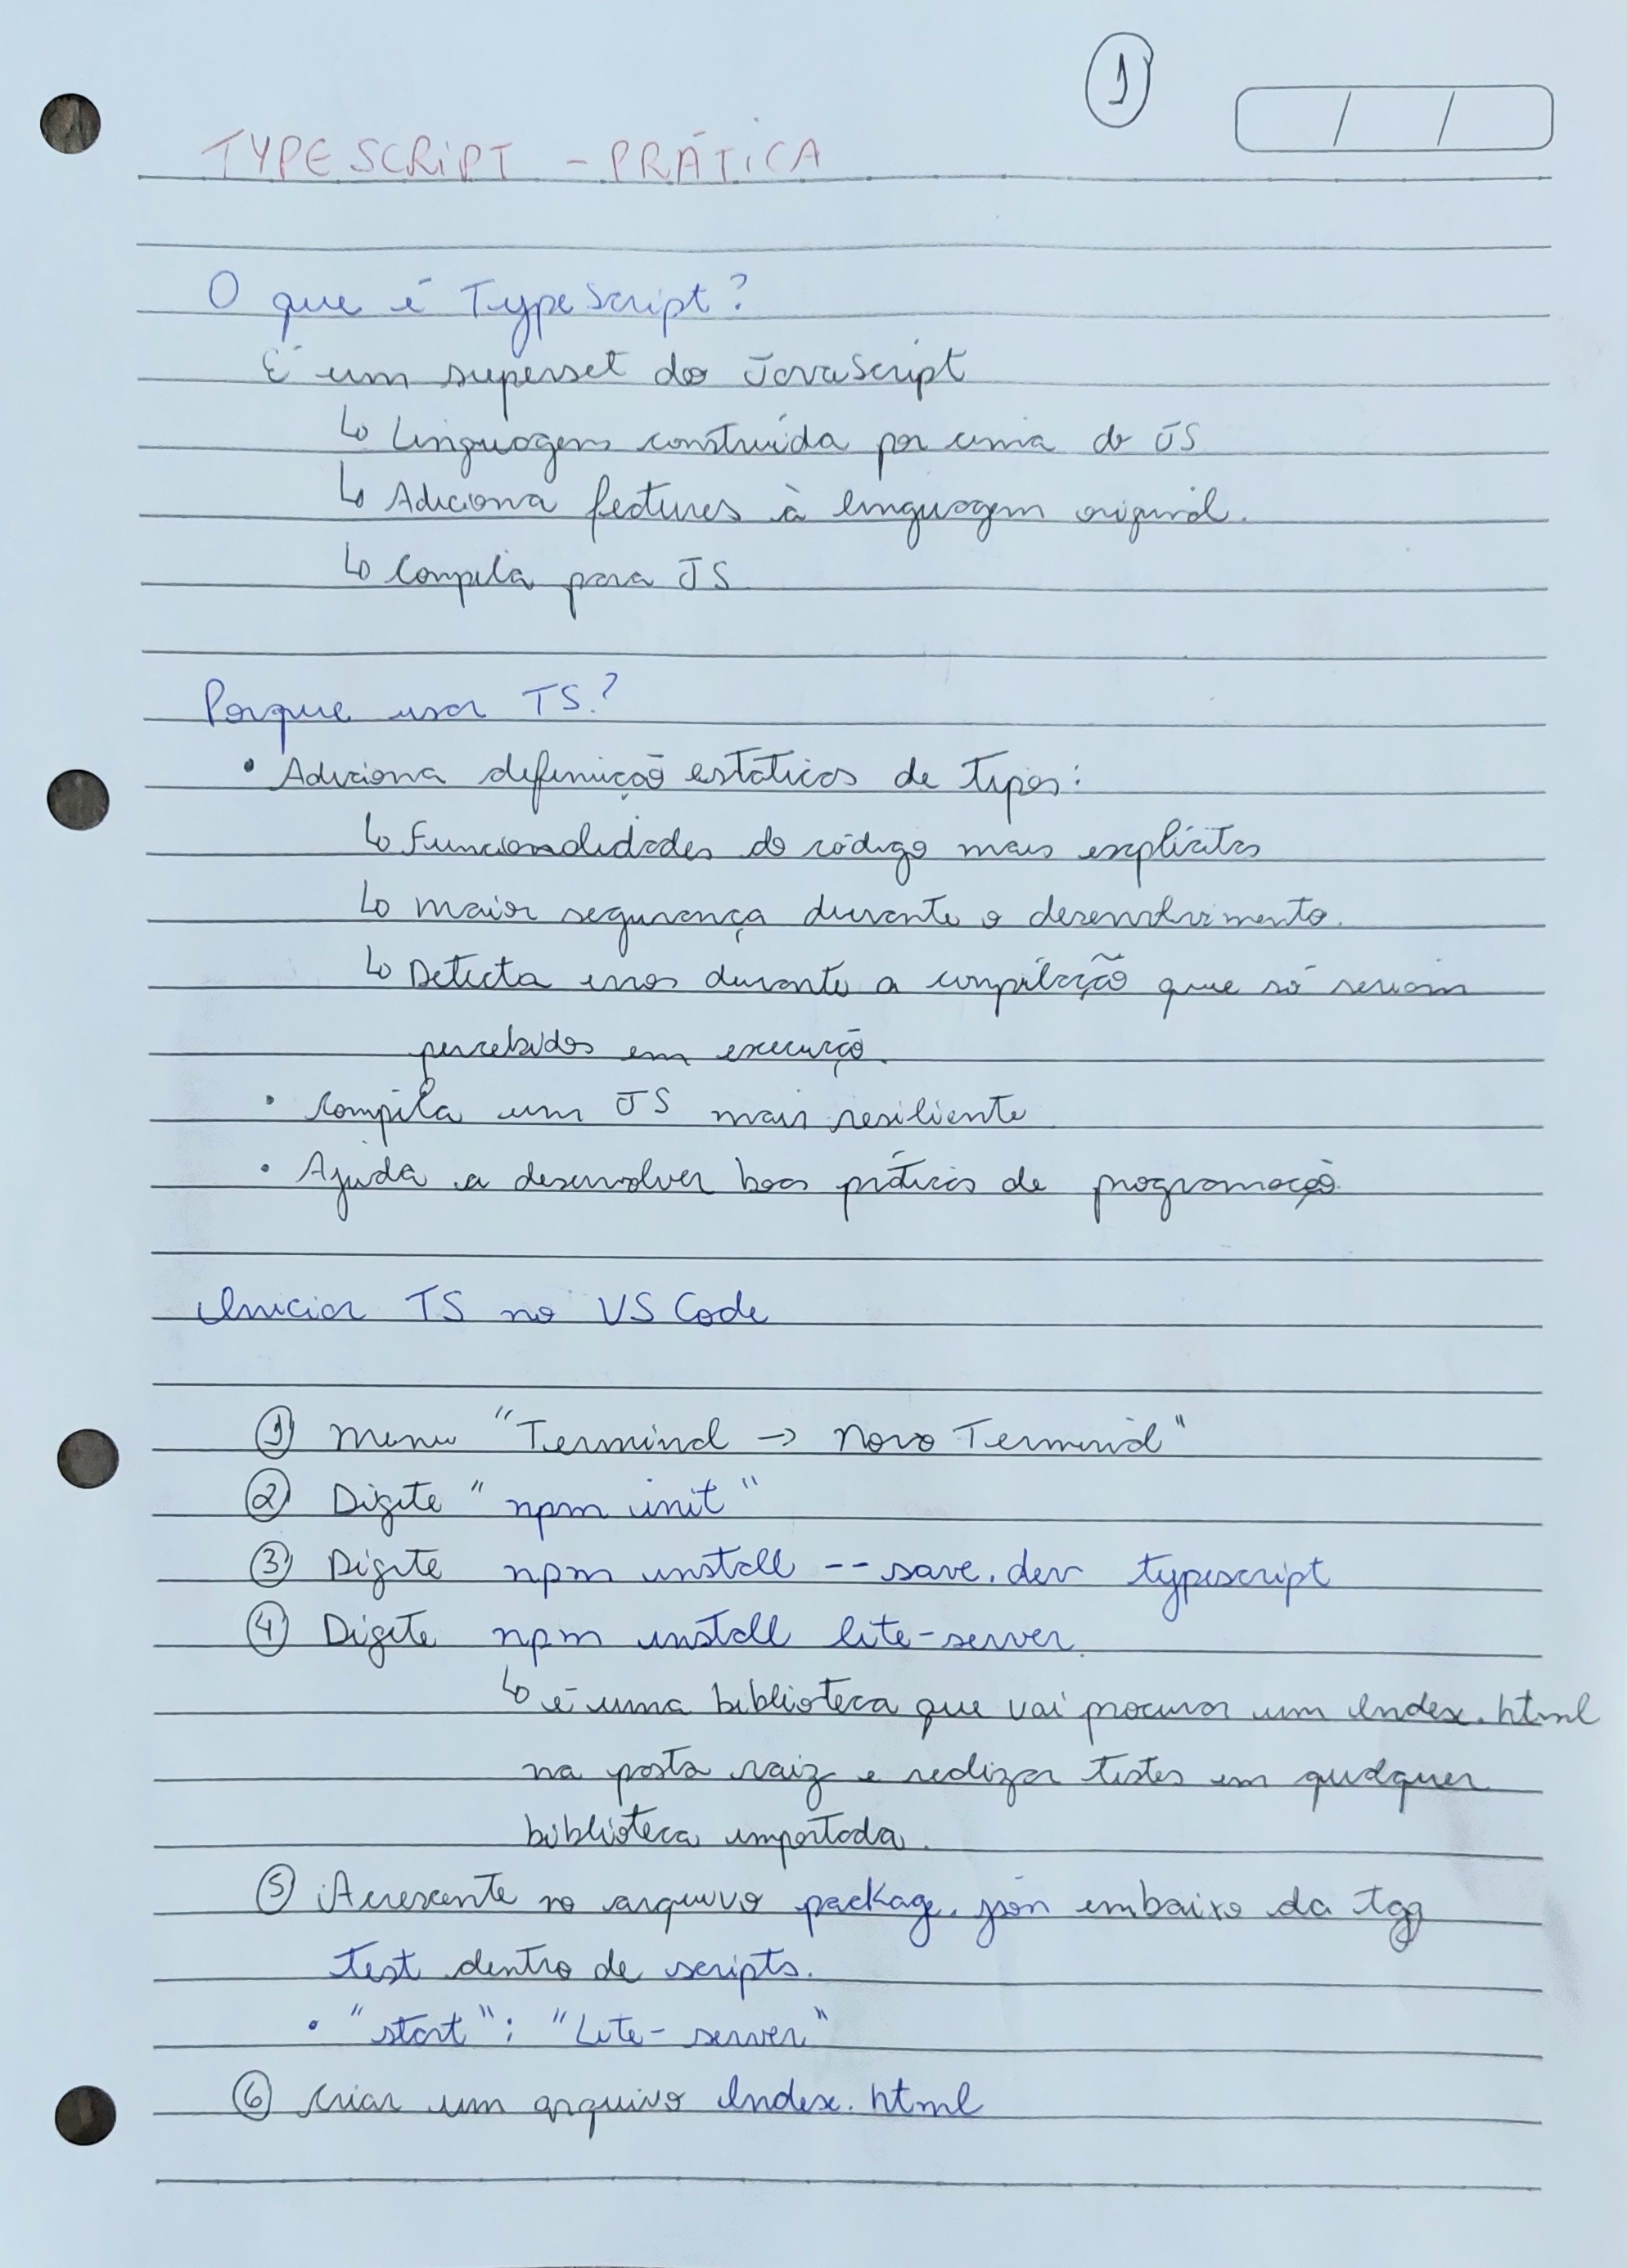 1
/ /
TYPESCRIPT - PRÁTICA
O que é TypeScript?
É um superset do JavaScript
↳ Linguagem construída por cima do JS
↳ Adiciona features à linguagem original.
↳ Compila para JS
Porque usar TS?
• Adiciona definição estáticas de tipos:
↳ Funcionalidades do código mais explícitas
↳ Maior segurança durante o desenvolvimento.
↳ Detecta erros durante a compilação que só seriam
percebidos em execução.
• Compila um JS mais resiliente
• Ajuda a desenvolver boas práticas de programação.
Iniciar TS no VS Code
① Menu "Terminal → Novo Terminal"
② Digite "npm init"
③ Digite npm install --save.dev typescript
④ Digite npm install lite-server.
↳ é uma biblioteca que vai procurar um Index.html
na pasta raiz e realizar testes em qualquer
biblioteca importada.
⑤ Acrescente no arquivo package.json embaixo da tag
test dentro de scripts.
• "start": "Lite-server"
⑥ Criar um arquivo Index.html